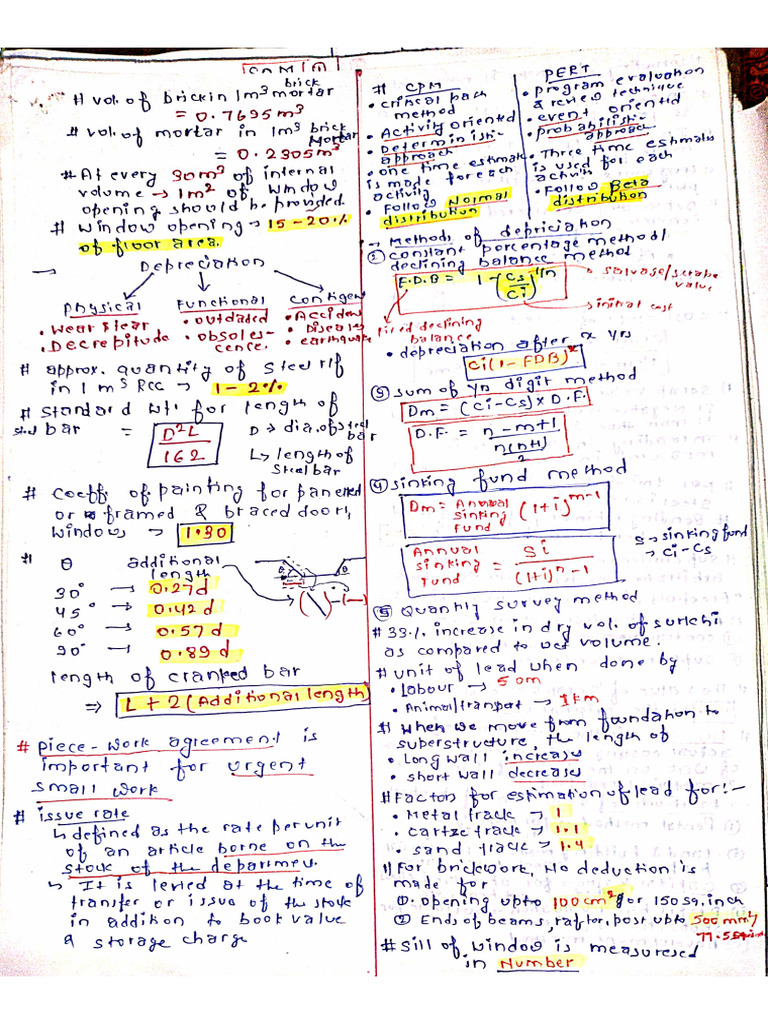 brick
# vol. of brick in 1m³ mortar
= 0.7695 m³
# vol. of mortar in 1m³ brick
Mortar
= 0.2305 m³
# At every 30m³ of internal
volume → 1m² of window
opening should be provided.
# window opening → 15-20%
of floor area.
→ Depreciation
Physical Functional Contigen
• Wear & tear • outdaded • Acciden
• Decrepitude • obsoles- • Disease
cence. • earthquake
# approx. quantity of steel r/f
in 1 m³ RCC → 1-2%
# standard wt. for length of
steel bar = D²L D → dia. of steel
bar
162 L → length of
Steel bar
# coeff. of painting for panelled
or framed & braced door,
windows → 1.30
# θ additional
length
30° → 0.27d
45° → 0.42d
60° → 0.57d
90° → 0.89d
length of cranked bar
⇒ L + 2 (Additional length)
# piece-work agreement is
important for urgent
small work
# issue rate
↳ defined as the rate per unit
of an article borne on the
stock of the departmen.
↳ It is levied at the time of
transfer or issue of the stock
in addition to book value
& storage charge
# CPM
• critical path
method
• Activity oriented
• Deterministic-
approach
• one time estimate
is made for each
activity
• Follows Normal
distribution
PERT
• program evaluation
& review technique
• event oriented
• probabilisti-
approach
• Three time estimates
is used for each
activity
• Follow Beta
distribution
→ Methods of depriciation
② constant percentage method/
declining balance method
F.D.B = 1 - (Cs/Ci)^1/n → salvage/scrape
value
→ initial cost
fixed declining
balance
• depreciation after x yrs
Ci(1-FDB)^x
③ sum of yr digit method
Dm = (Ci-Cs) x D.F.
D.F. = n-m+1
n(n+1)
2
④ sinking fund method
Dm = Annual
sinking
fund (1+i)^m-1
Annual
sinking
fund = Si
(1+i)^n - 1
S → sinking fund
→ Ci-Cs
⑤ Quantity survey method
# 33% increase in dry vol. of surkhi
as compared to wet volume.
# unit of lead when done by
• Labour → 50m
• Animal transport → 1km
# When we move from foundation to
superstructure, the length of
• Long wall increases
• short wall decreases
# Factors for estimation of lead for:-
• Metal track → 1
• cartze track → 1.1
• sand track → 1.4
# For brickwork, No deduction is
made for
① opening upto 100cm² for 150 sq. inch
② Ends of beams, rafter, post upto 500mm²/
77.5 sq in
# sill of window is measured
in Number